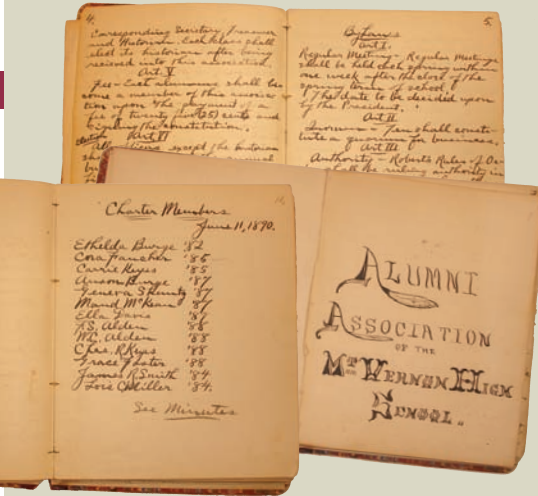 4.
Corresponding Secretary, Treasurer
and Historian. Each class shall
elect its historian after being
received into this association.
Art. V
Fee - Each alumnus shall be-
come a member of this associa-
tion upon the payment of a
fee of twenty five (25) cents and
signing the constitution.
Election Art VI
All officers, except the historian
5.
By Laws
Art I.
Regular Meeting - Regular Meetings
shall be held each spring within
one week after the close of the
spring term of school.
The date to be decided upon
by the President.
Art II
Quorum - Ten shall consti-
tute a quorum for business.
Art III
Authority - Roberts Rules of Or-
shall be ruling authority in
Charter Members
June 11, 1890.
Ethelda Burge '82
Cora Fancher '86
Carrie Keyes '85
Anson Burge '87
Geneva '87
Maud McKean '87
Ella Davis '87
F.S. Alden '88
W.C. Alden '88
Chas. R Keyes '88
Grace Foster '88
James R Smith '84.
Miller '84.
See Minutes
ALUMNI
ASSOCIATION
OF THE
MT VERNON HIGH
SCHOOL.